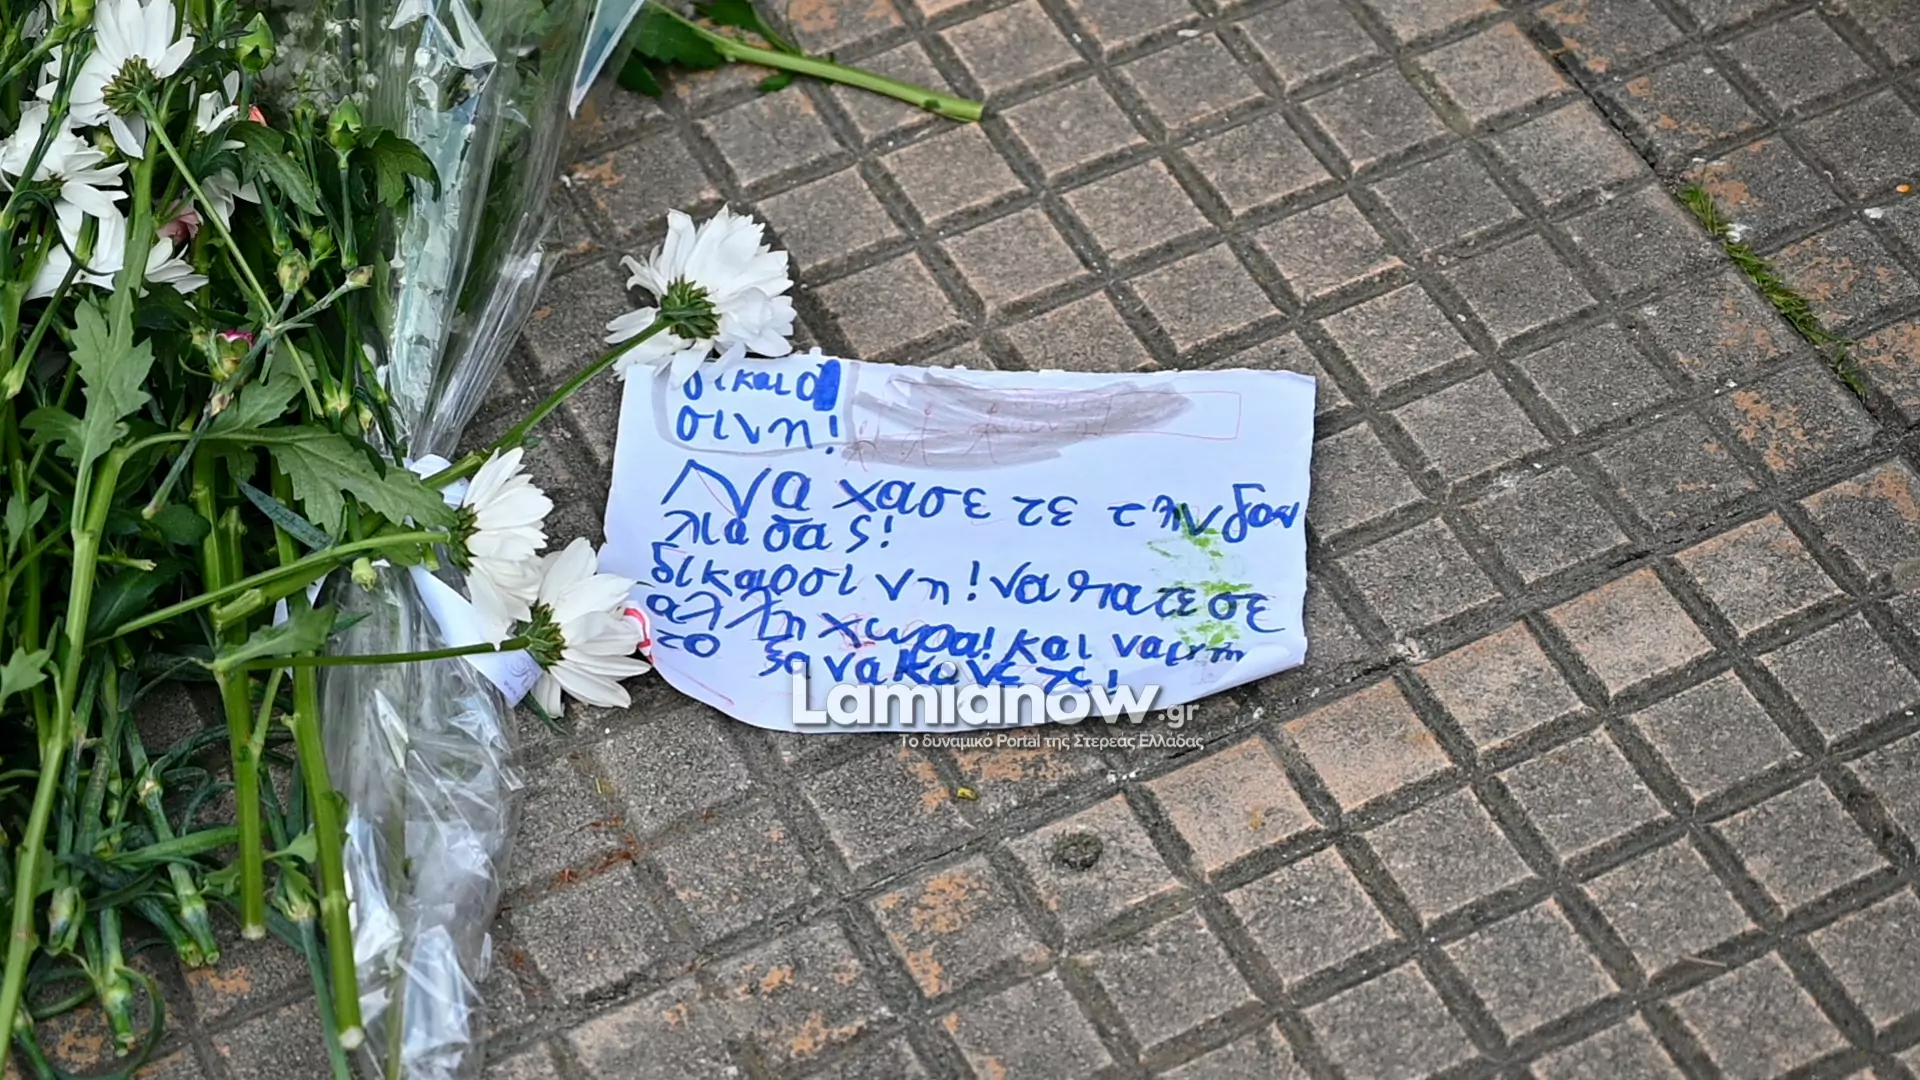 δικαιο
σινη!
Να χασε τε τηνδου
λιασας!
δικαοσινη! να πατεσε
αλλη χωρα! και ναμην
το ξανακανετε!
Lamianow.gr
Το δυναμικό Portal της Στερεάς Ελλάδας